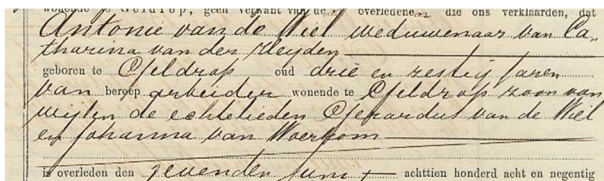 wonende te Geldrop, geen verwant van den overledenen die ons verklaarden, dat
Antonie van de Wiel weduwenaar van Ca-
tharina van der Heyden
geboren te Geldrop oud drie en zestig jaren
van beroep arbeider wonende te Geldrop zoon van
wijlen de echtelieden Gerardus van de Wiel
en Johanna van Woerkom
is overleden den zevenden Juni achttien honderd acht en negentig